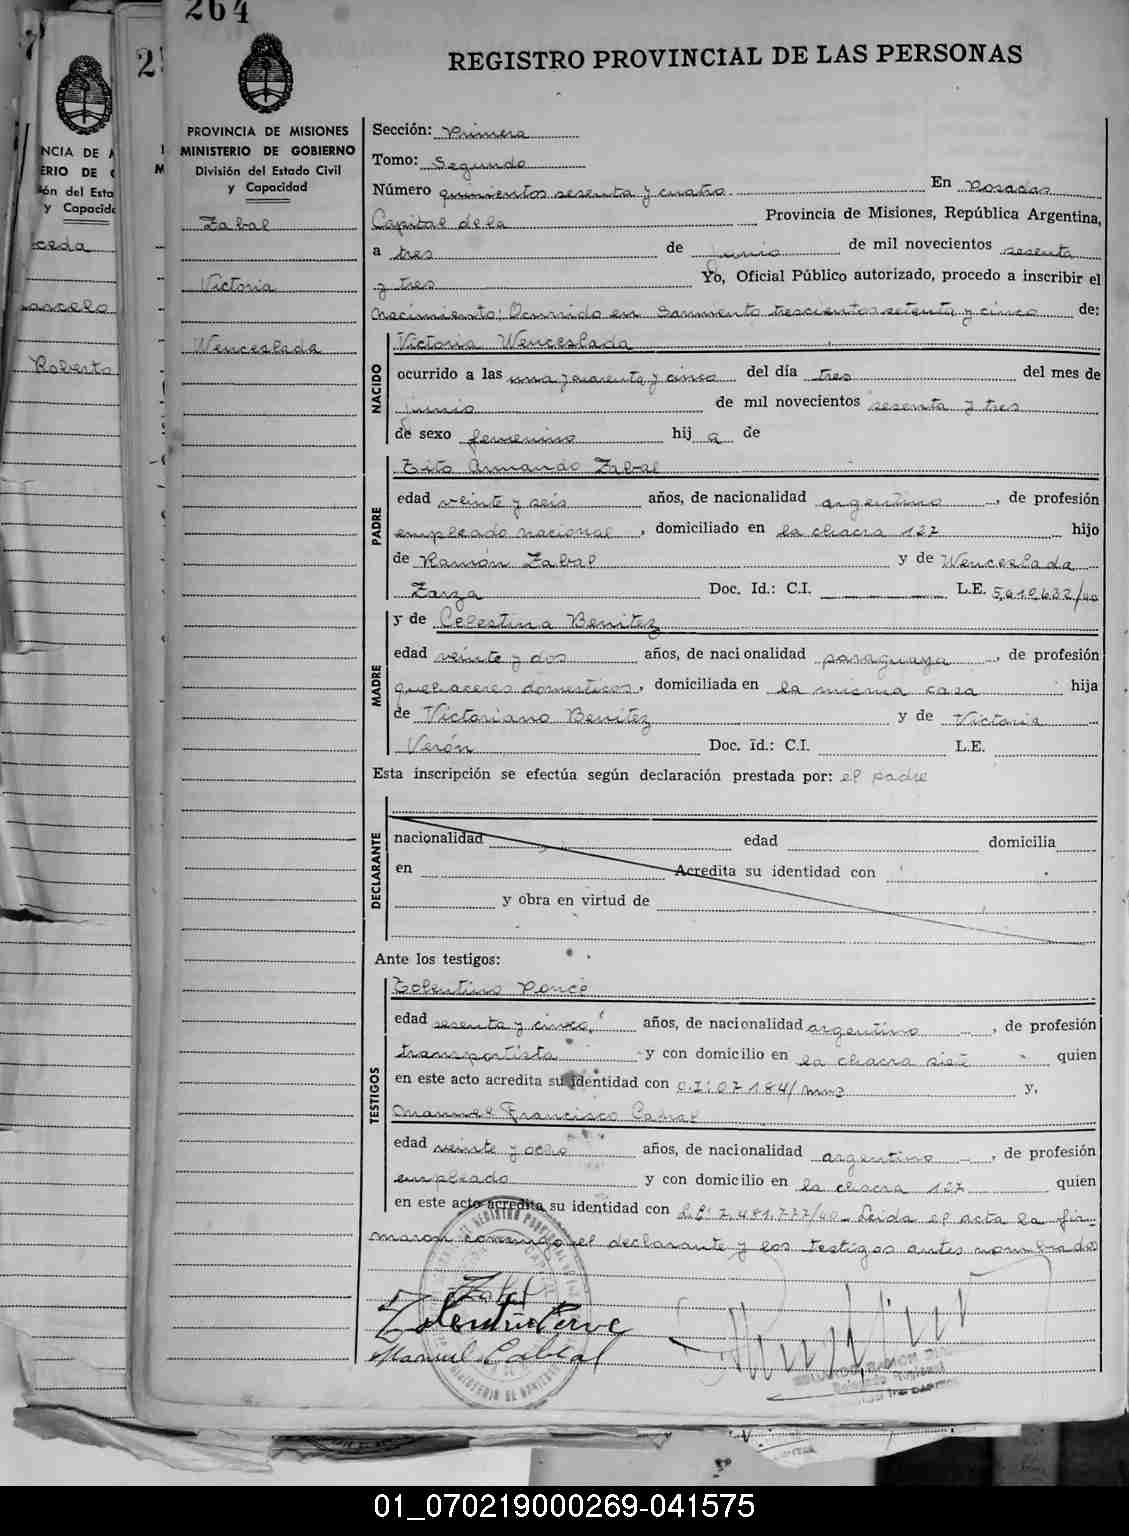 264
REGISTRO PROVINCIAL DE LAS PERSONAS
PROVINCIA DE MISIONES
MINISTERIO DE GOBIERNO
División del Estado Civil
y Capacidad
Zabal
Victoria
Wenceslada
NCIA DE
ERIO DE
ón del Esta
y Capacida
ceda
arcelo
Roberto
Sección: Primera
Tomo: Segundo
Número quinientos sesenta y cuatro. En Posadas
Capital de la Provincia de Misiones, República Argentina,
a tres de junio de mil novecientos sesenta
y tres Yo, Oficial Público autorizado, procedo a inscribir el
nacimiento: Ocurrido en Sarmiento trescientos setenta y cinco de:
NACIDO
Victoria Wenceslada
ocurrido a las una y cuarenta y cinco del día tres del mes de
junio de mil novecientos sesenta y tres
de sexo femenino hij a de
PADRE
Tito Armando Zabal
edad veinte y seis años, de nacionalidad argentino, de profesión
empleado nacional, domiciliado en la chacra 127 hijo
de Ramón Zabal y de Wenceslada
Zarza Doc. Id.: C.I. L.E. 5,610,632/40
MADRE
y de Celestina Benitez
edad veinte y dos años, de nacionalidad paraguaya, de profesión
quehaceres domesticos, domiciliada en la misma casa hija
de Victoriano Benitez y de Victoria
Verón Doc. id.: C.I. L.E.
Esta inscripción se efectúa según declaración prestada por: el padre
DECLARANTE
nacionalidad edad domicilia
en Acredita su identidad con
y obra en virtud de
Ante los testigos:
TESTIGOS
Tolentino Ponce
edad sesenta y cinco, años, de nacionalidad argentino, de profesión
transportista y con domicilio en la chacra siete quien
en este acto acredita su identidad con C.I: 07184/ y,
Manuel Francisco Cabral
edad veinte y ocho años, de nacionalidad argentino, de profesión
empleado y con domicilio en la chacra 127 quien
en este acto acredita su identidad con L.E: 7,481,777/40. Leida el acta la fir-
maron conmigo el declarante y los testigos antes nombrados
Zabal
Tolentino Ponce
Manuel Cabral
01_070219000269-041575